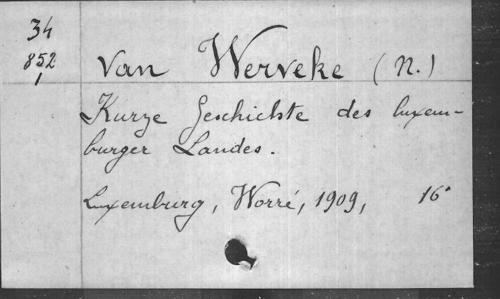 34
852
1
van Werveke (N.)
Kurze Geschichte des luxem-
burger Landes.
Luxemburg, Worré, 1909, 16°